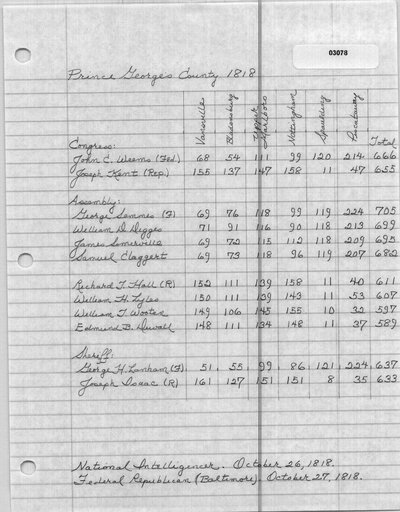 03078
Prince Georges County 1818
Vansville Bladensburg Upper Marlboro Nottingham Spaulding Piscataway Total
Congress:
John C. Weems (Fed.) 68 54 111 99 120 214 666
Joseph Kent (Rep.) 155 137 147 158 11 47 655
Assembly:
George Semmes (F) 69 76 118 99 119 224 705
William D. Digges 71 91 116 90 118 213 699
James Somervill 69 72 115 112 118 209 695
Samuel Claggett 69 73 118 96 119 207 682
Richard T. Hall (R) 152 111 139 158 11 40 611
William H. Lyles 150 111 139 143 11 53 607
William T. Wooten 149 106 145 155 10 32 597
Edmund B. Duvall 148 111 134 148 11 37 589
Sheriff:
George H. Lanham (F) 51 55 99 86 121 224 637
Joseph Isaac (R) 161 127 151 151 8 35 633
National Intelligencer. October 26, 1818.
Federal Republican (Baltimore). October 27, 1818.